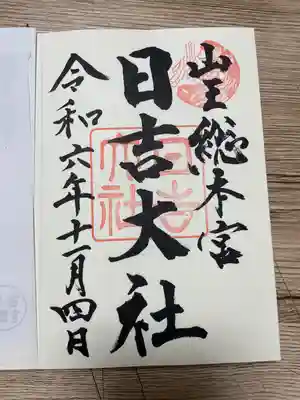 山王總本宮
日吉大社
令和六年十一月四日
日吉大社